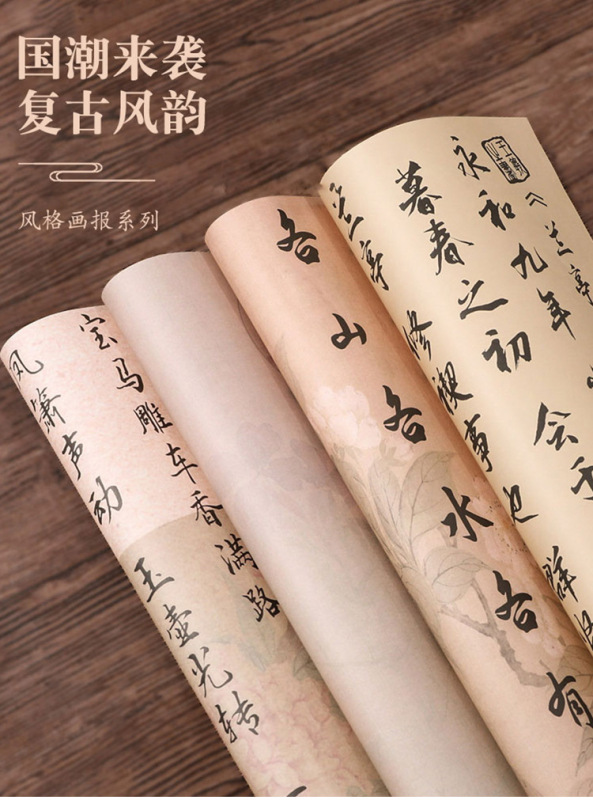 国潮来袭
复古风韵
风格画报系列
《兰亭
永和九年
暮春之初
会于
兰亭
修禊事也
群
各山各水各有
宝马雕车香满路
凤箫声动
玉壶光转